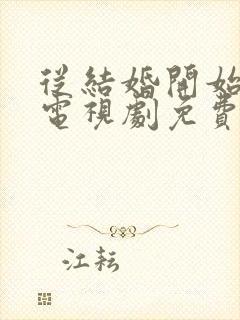 從結婚開始
電視劇免費
江耘